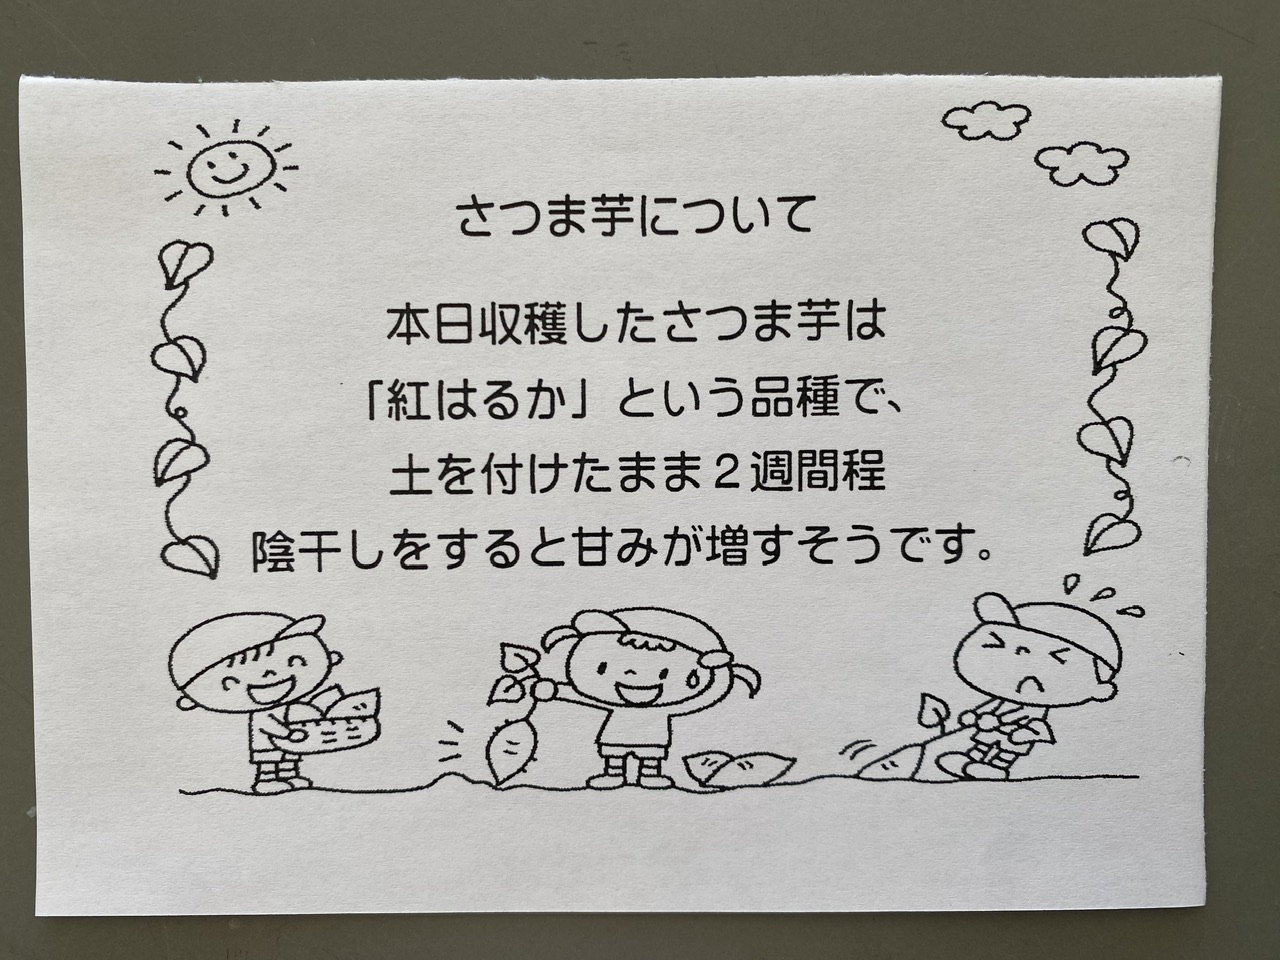 さつま芋について
本日収穫したさつま芋は
「紅はるか」という品種で、
土を付けたまま２週間程
陰干しをすると甘みが増すそうです。